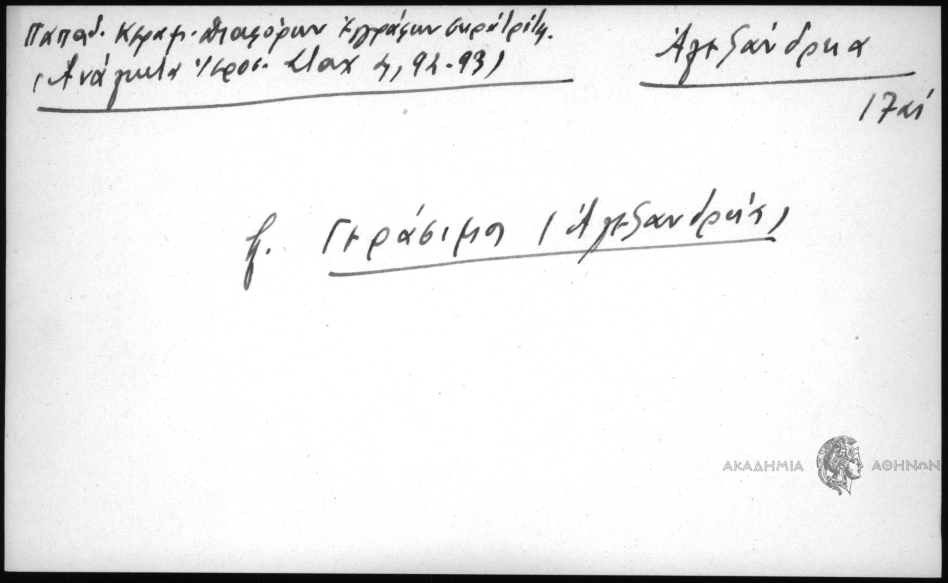 Παπαδ. Κεραμ. Διαφόρων ἐγγράφων
(Ἀνάλεκτα Ἱεροσ. Σταχ 4, 92-93)
Ἀλεξάνδρεια
17 αἰ
βλ. Γεράσιμοι (Ἀλεξανδρείας)
ΑΚΑΔΗΜΙΑ ΑΘΗΝΩΝ